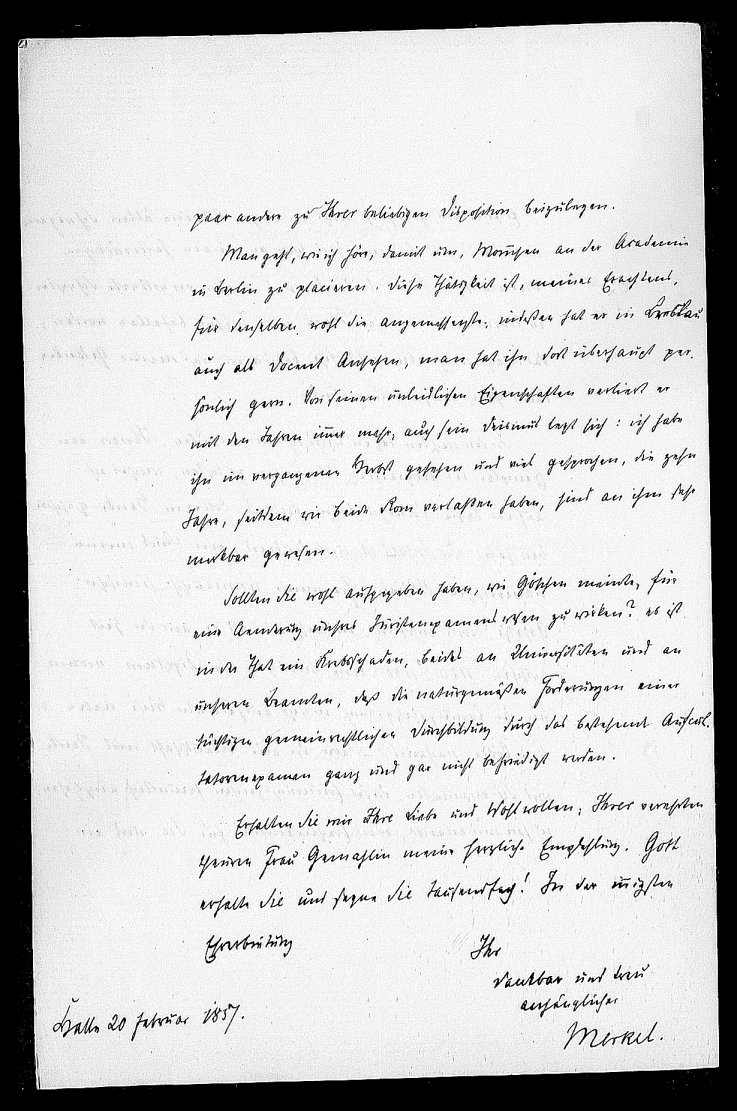 paar andere zu Ihrer beliebigen Disposition beizulegen.
Man geht, wie ich höre, damit um, Momsen an der Academie
in Berlin zu placieren. Diese Thätigkeit ist, meines Erachtens,
für denselben wohl die angemessenste; indeßen hat er in Breslau
auch als Docent Ansehen, man hat ihn dort überhaupt per-
sönlich gern. Von seinen unleidlichen Eigenschaften verliert er
mit den Jahren immer mehr, auch sein Deismus legt sich: ich habe
ihn im vergangenen Herbst gesehen und viel gesprochen, die zehn
Jahre, seitdem wir beide Rom verlaßen haben, sind an ihm sehr
merkbar gewesen.
Sollten Sie wohl aufgegeben haben, wie Göschen meinte, für
eine Aenderung unseres Juristenexamenswesen zu wirken? es ist
in der That ein Krebsschaden, beides an Universitäten und an
unseren Beamten, daß die naturgemäßen Forderungen einer
tüchtigen gemeinrechtlichen Durchbildung durch das bestehende Auscul-
tatorenexamen ganz und gar nicht befriedigt werden.
Erhalten Sie mir Ihre Liebe und Wohlwollen; Ihrer verehrten
theuren Frau Gemahlin meine herzliche Empfehlung. Gott
erhalte Sie und segne Sie tausendfach! In der innigsten
Ehrerbietung
Ihr
dankbar und treu
anhänglicher
Merkel.
Halle 20 Februar 1857.